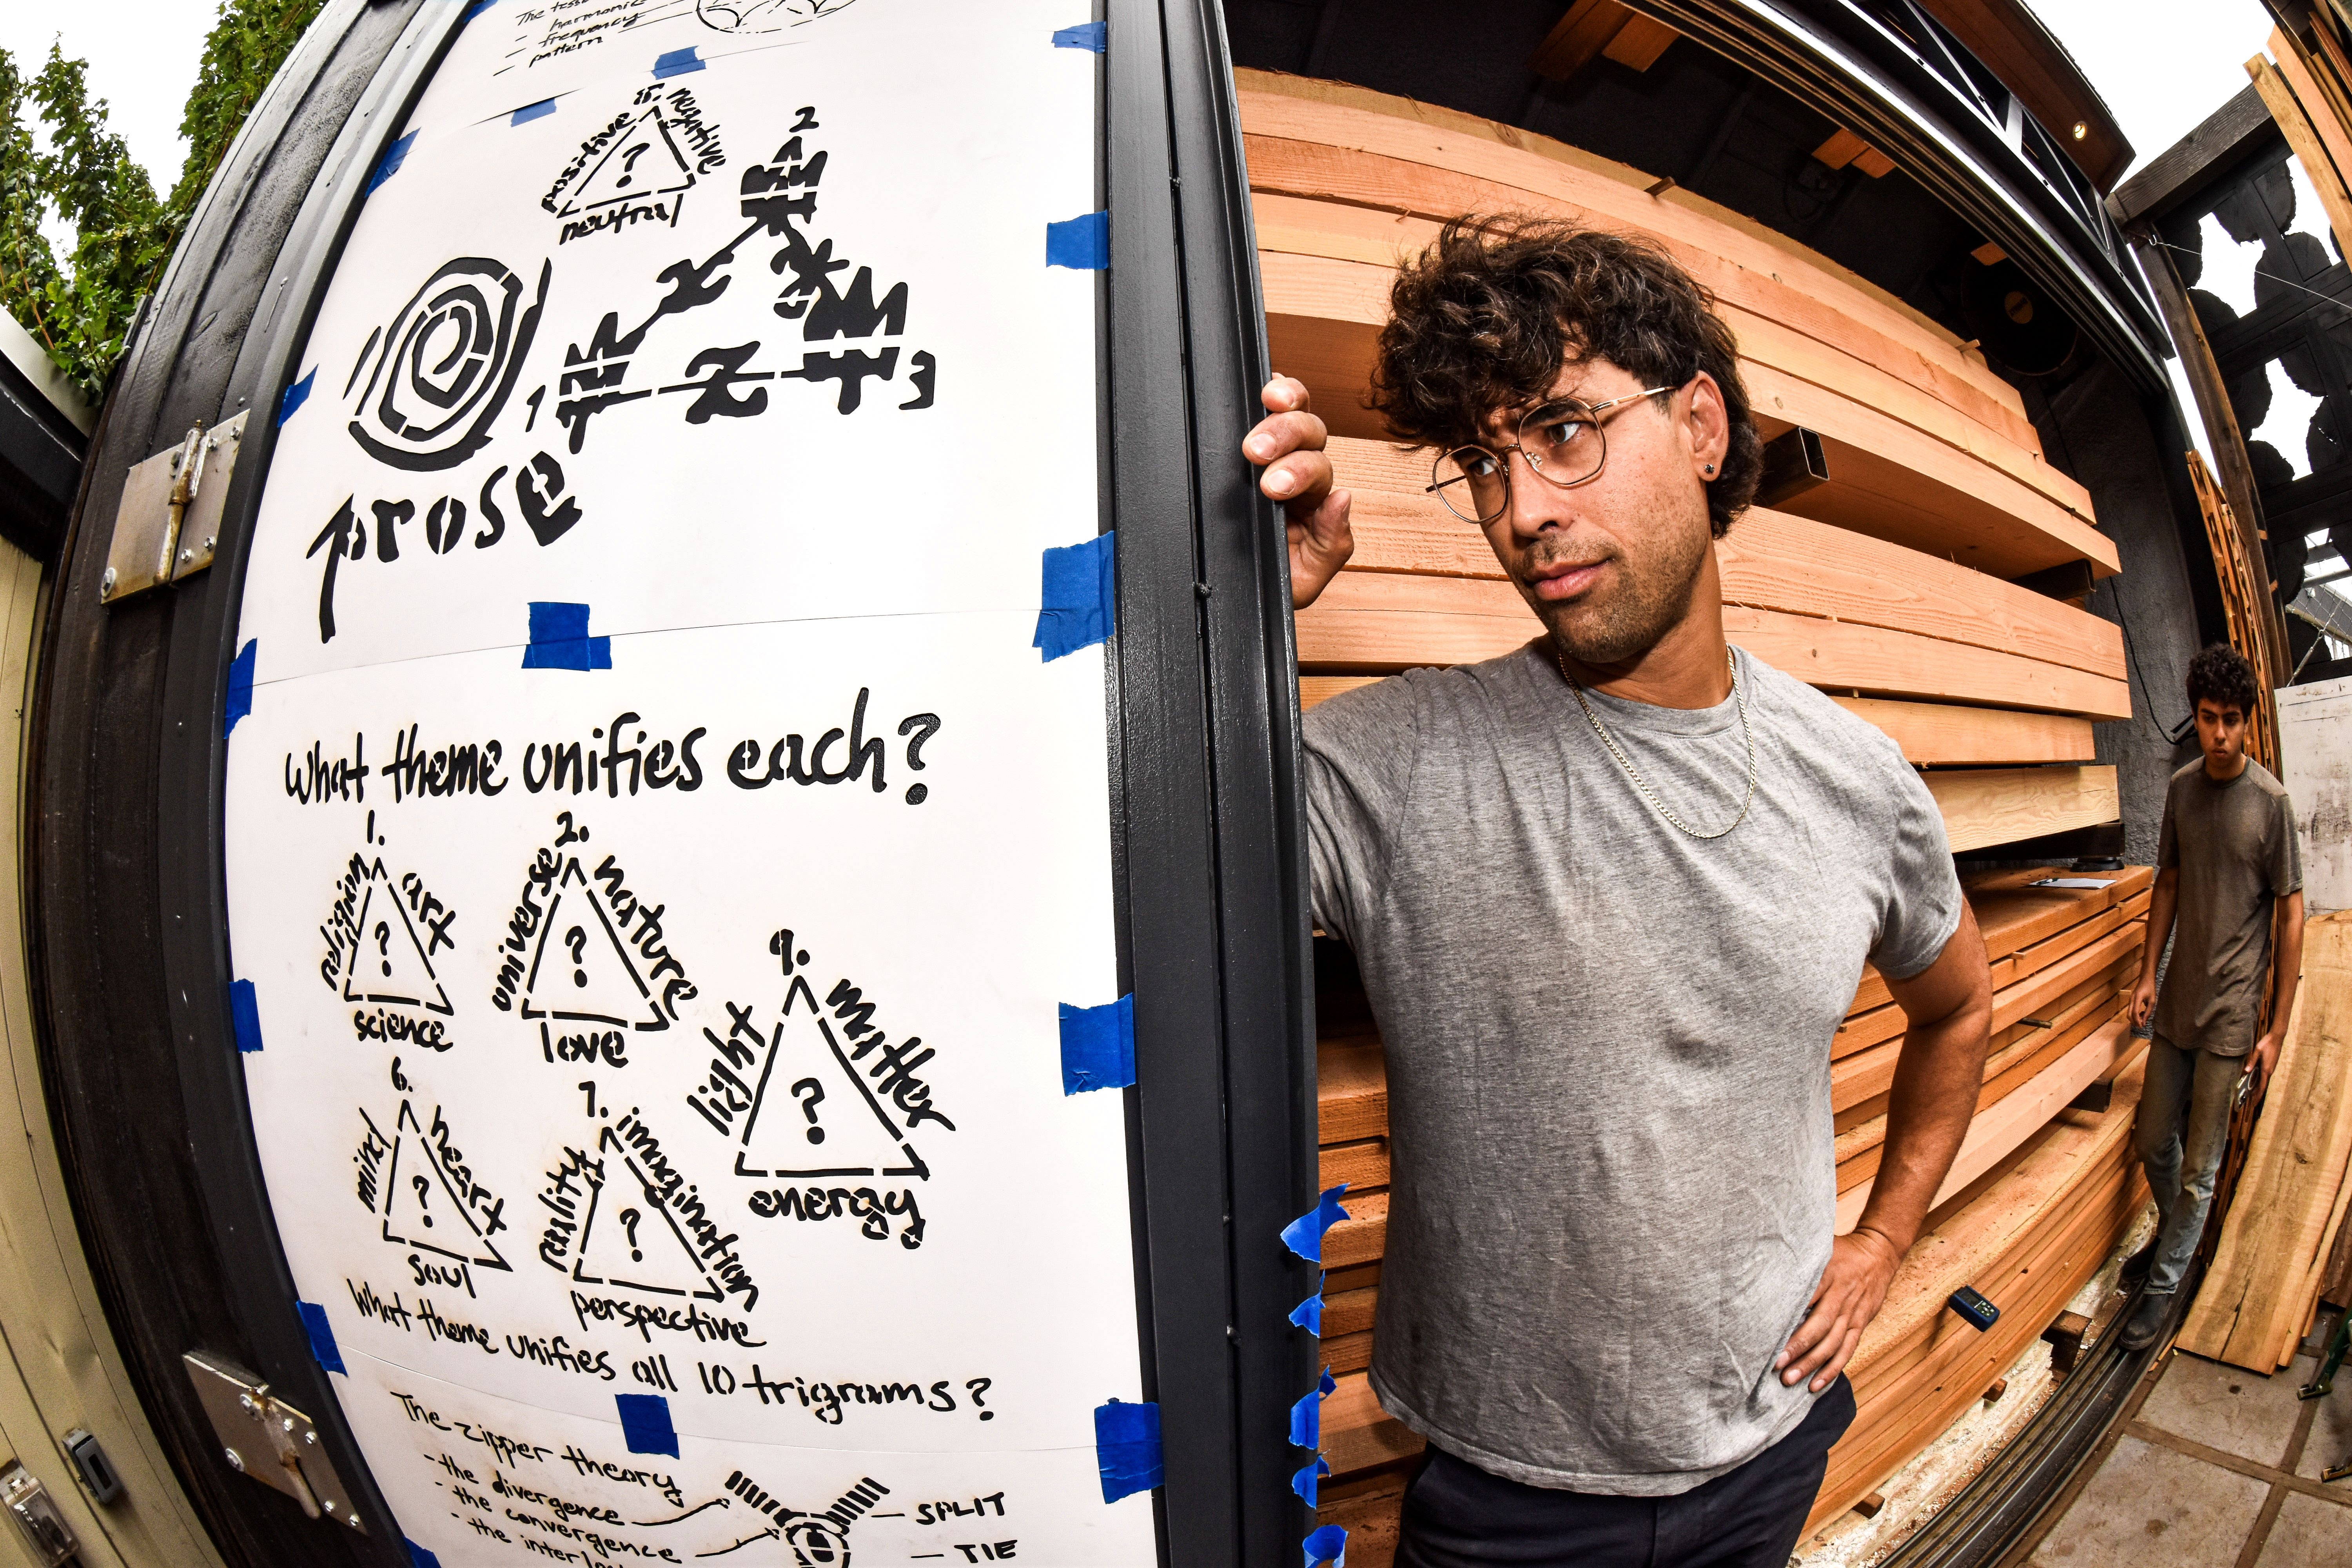 The
- harmonic
- frequency
- pattern
15.
positive
negative
?
neutral
2
x
y
1
z
3
prose
What theme unifies each?
1.
religion
art
?
science
2.
universe
nature
?
love
9.
light
matter
?
energy
6.
mind
heart
?
soul
7.
reality
imagination
?
perspective
What theme unifies all 10 trigrams?
The zipper theory
- the divergence
- the convergence
- the
SPLIT
TIE